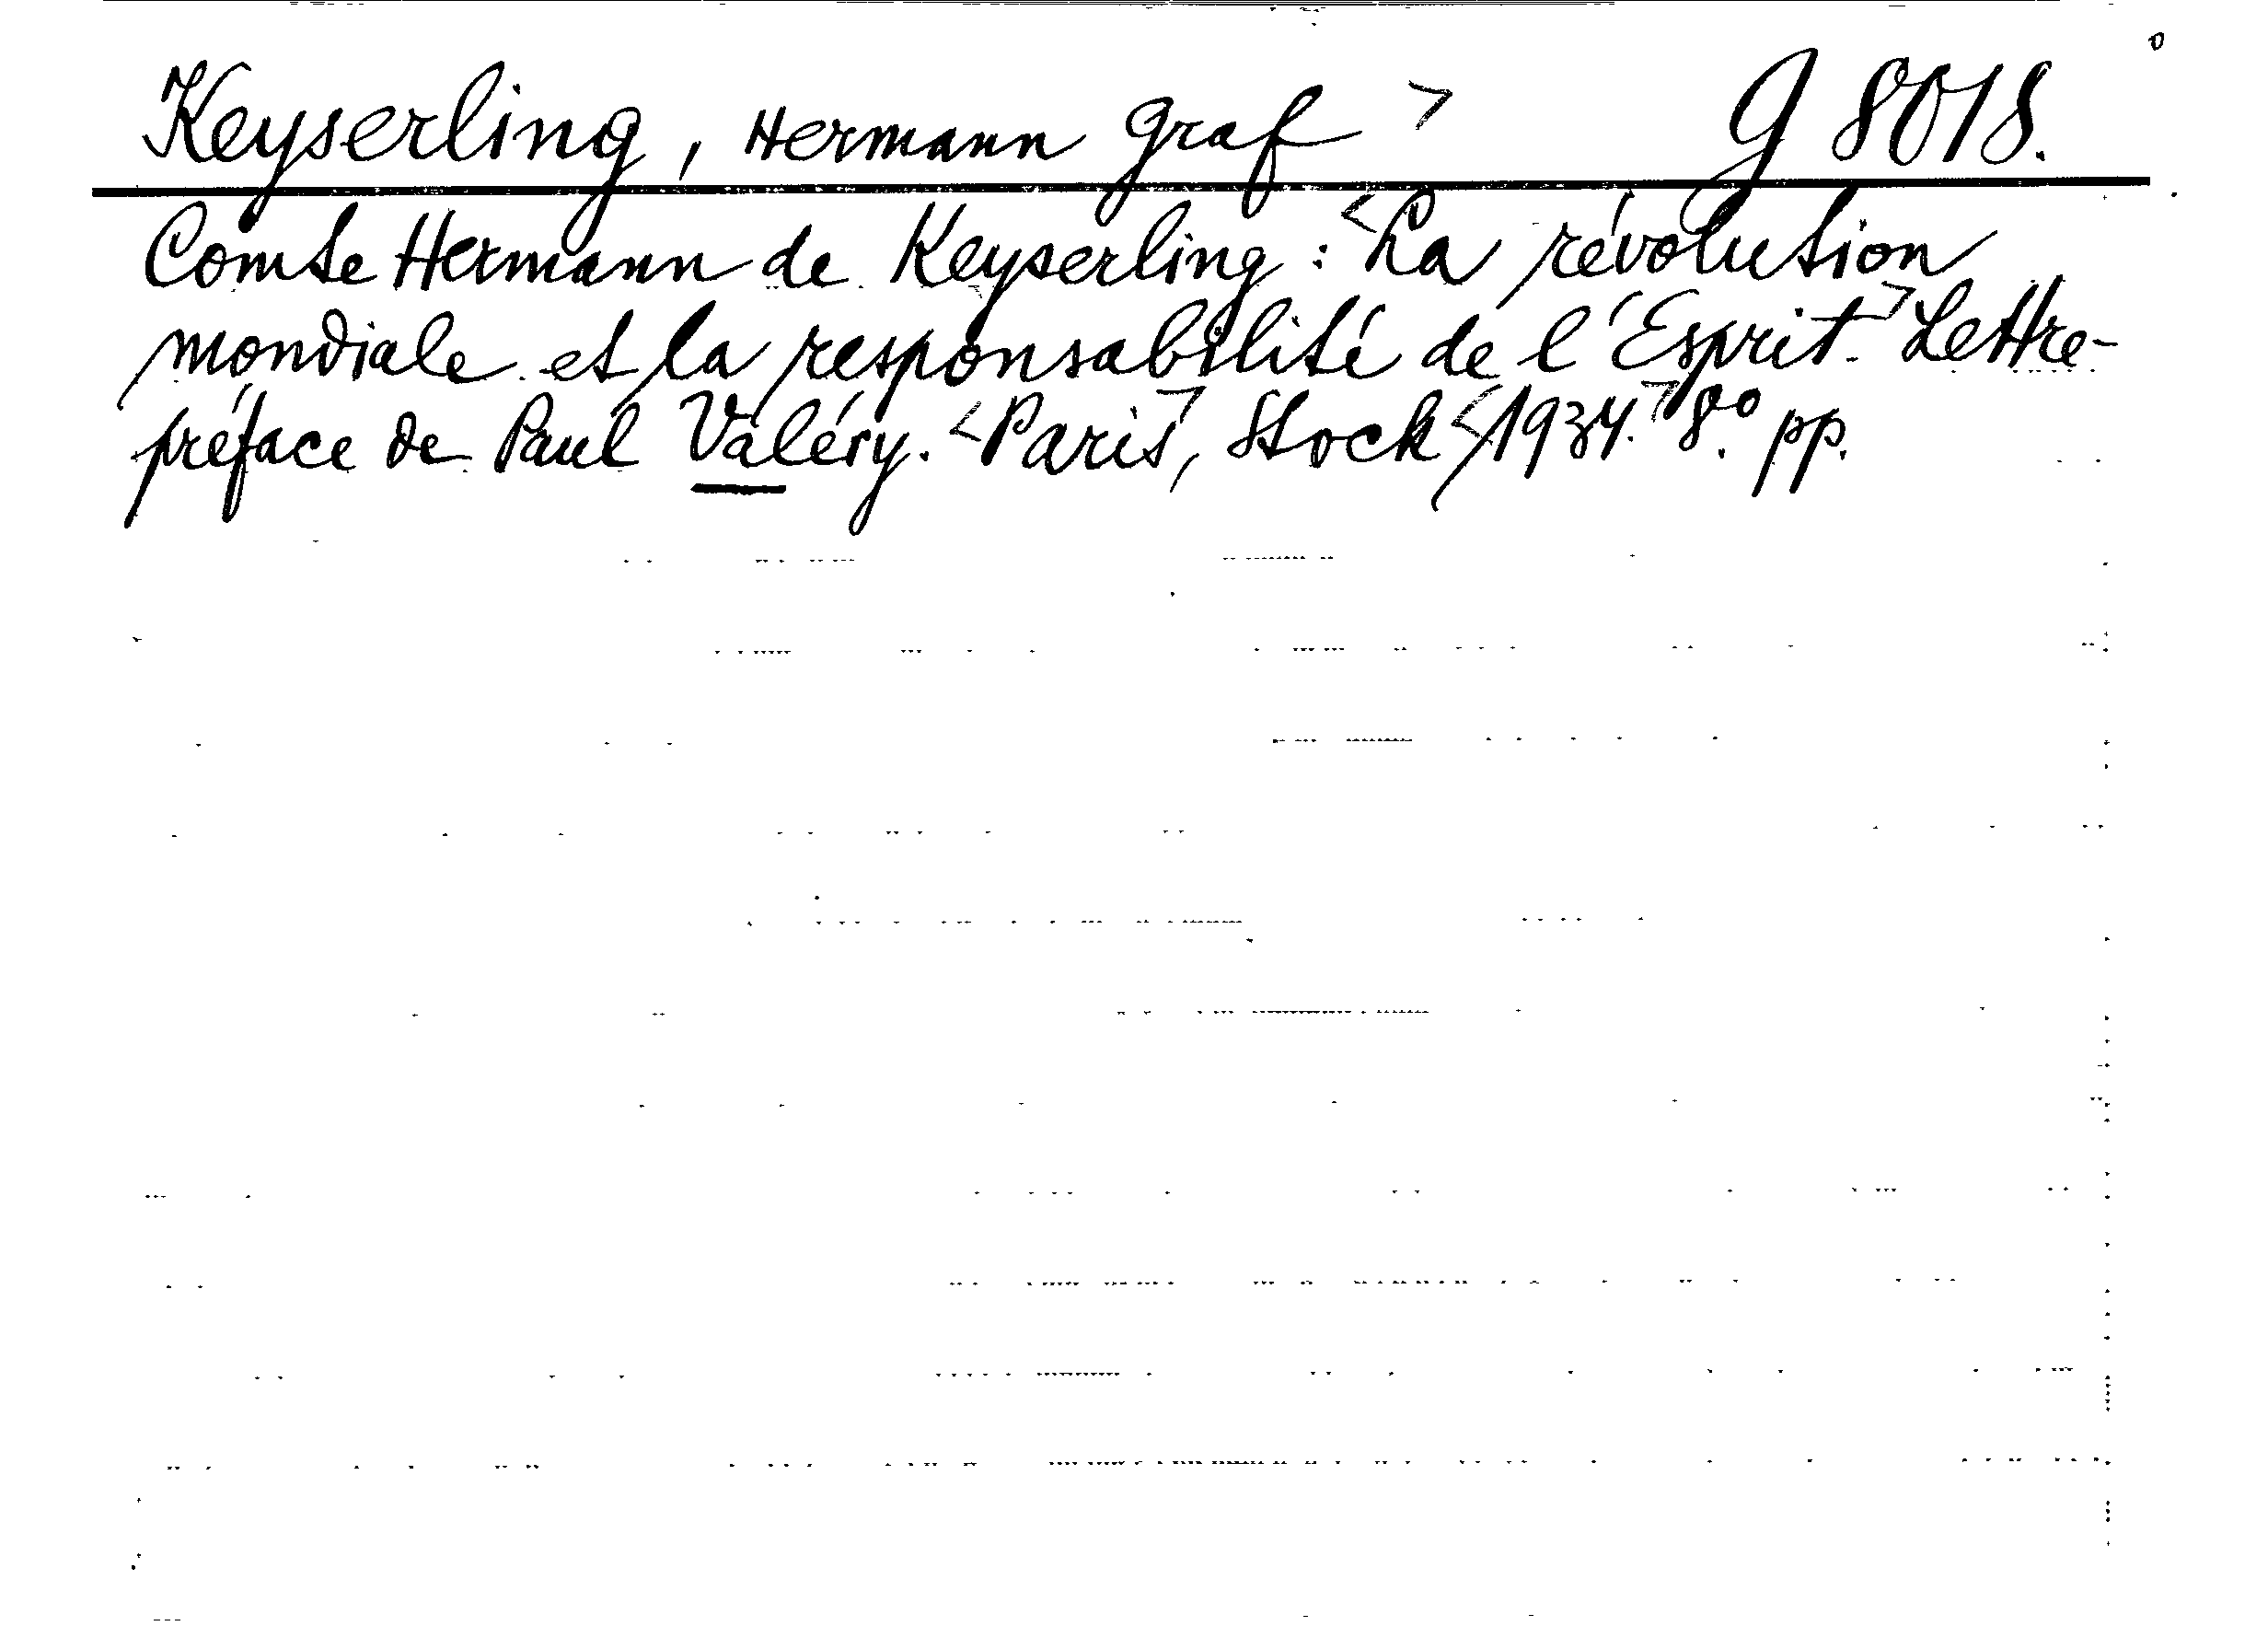 Keyserling, Hermann Graf > G 8018.
Comte Hermann de Keyserling: <La révolution
mondiale et la responsabilité de l'Esprit.> Lettre-
préface de Paul Valéry. <Paris>, Stock <1934.> 8.° pp.